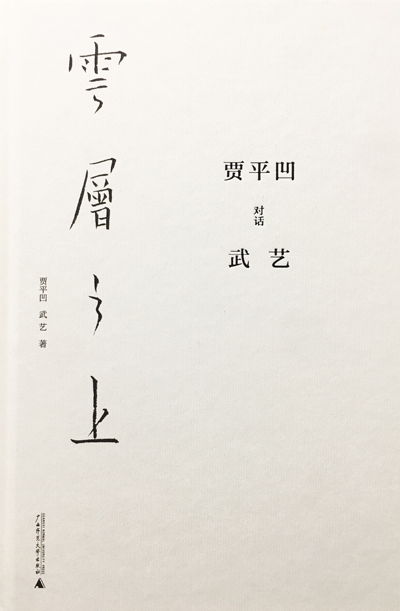 雲層之上
贾平凹
对话
武艺
贾平凹 武艺 著
广西师范大学出版社